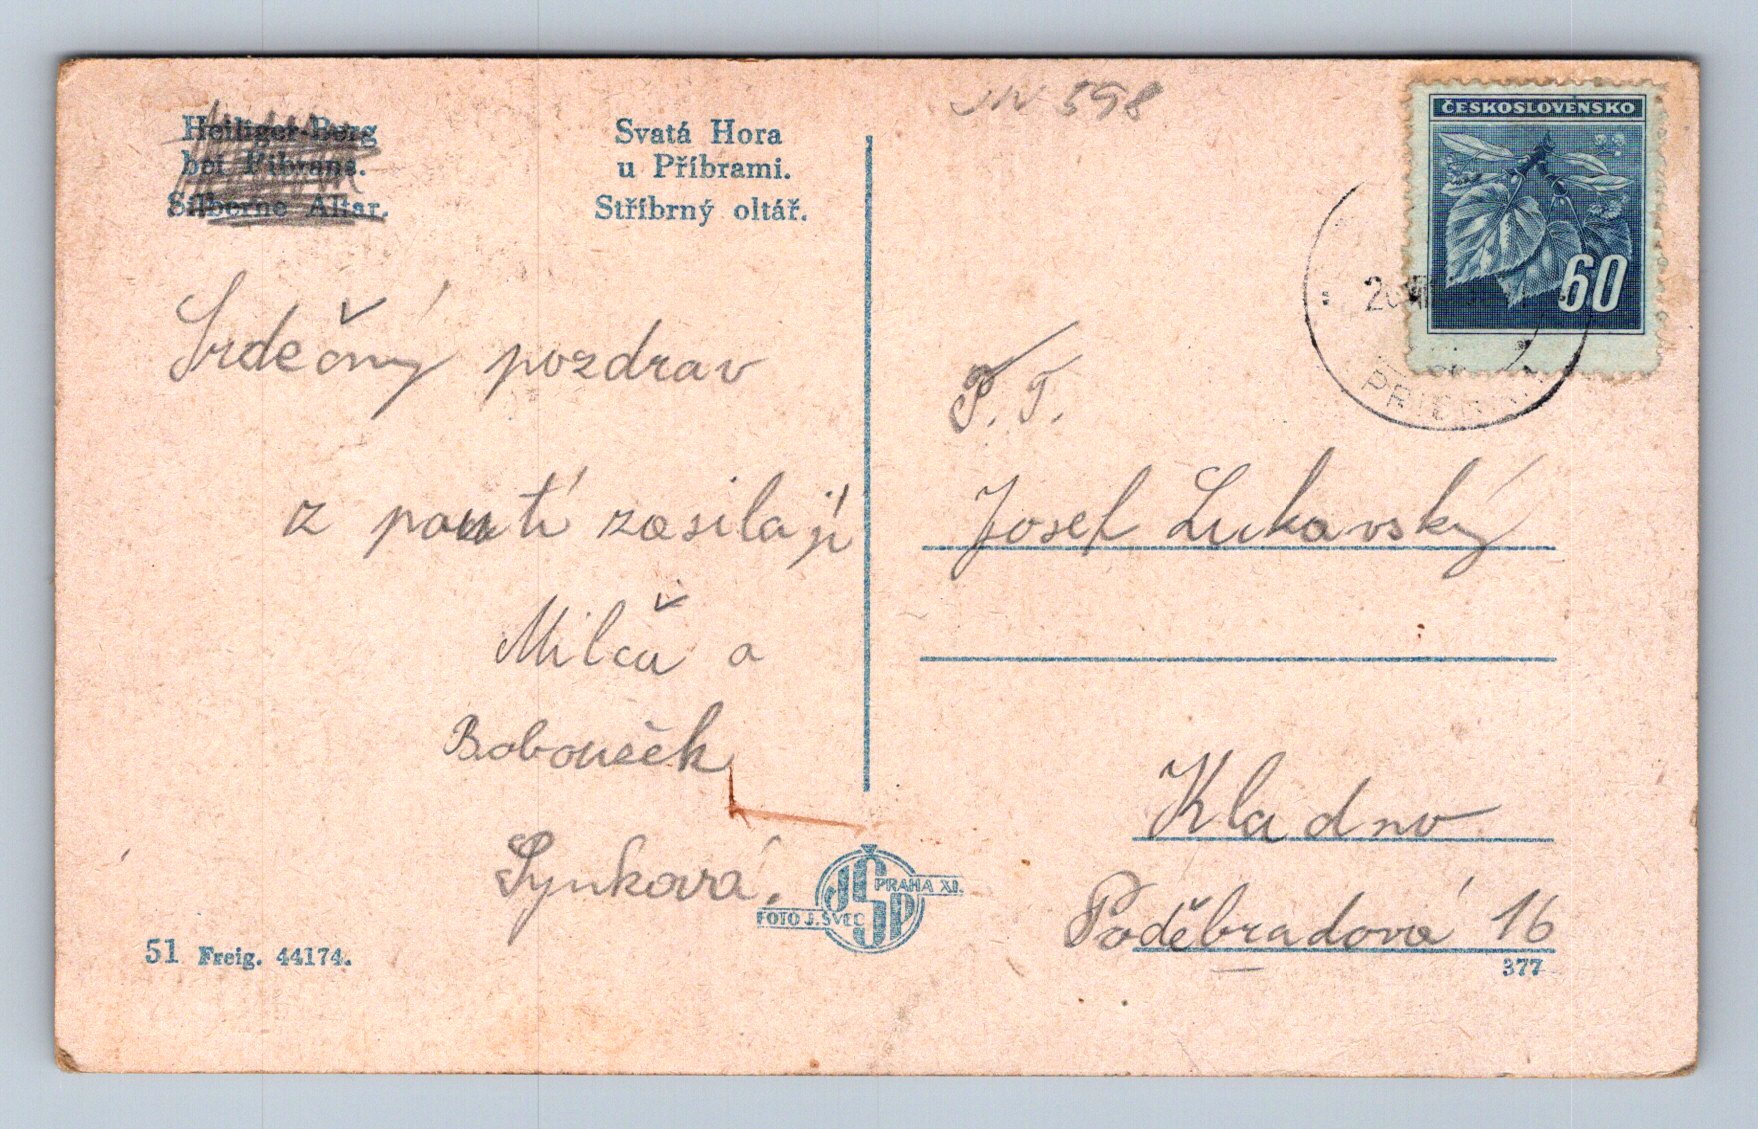 Heiliger Berg
bei Pibrans.
Silberne Altar.
Svatá Hora
u Příbrami.
Stříbrný oltář.
598
ČESKOSLOVENSKO
60
PŘÍBRAM
Srdečný pozdrav
z pouti zasílají
Milča a
Boboušek
Synková.
P. T.
Josef Lukavský
Kladno
Poděbradová 16
377
JŠP
PRAHA XI.
FOTO J. ŠVEC
51 Freig. 44174.